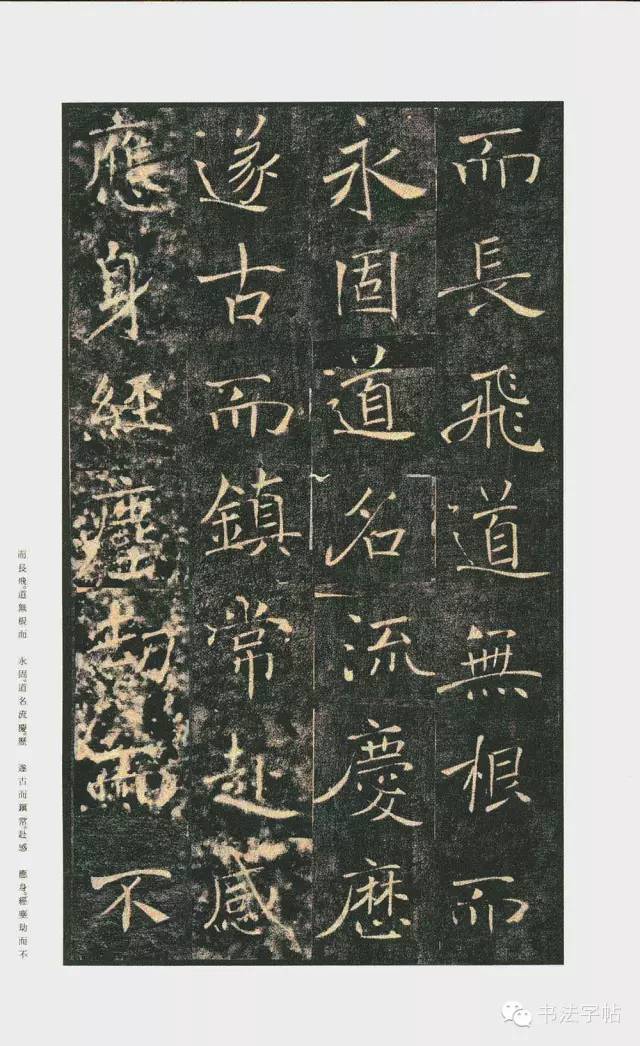 而長飛道無根而
永固道名流慶歷
遂古而鎮常赴感
應身經塵劫而不
而長飛。道無根而　永固。道名流慶。歷　遂古而鎮常。赴感　應身。經塵劫而不
书法字帖